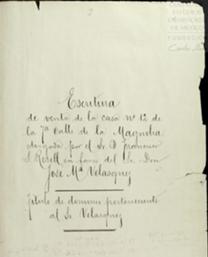 2
Escritura
de venta de la casa Nº 12 de
la 7ª Calle de la Magnolia
otorgada por el Sr. D. Francisco
J. Rosell en favor del Sr. Don
Jose Mª Velasquez
título de dominio perteneciente
al Sr Velasquez